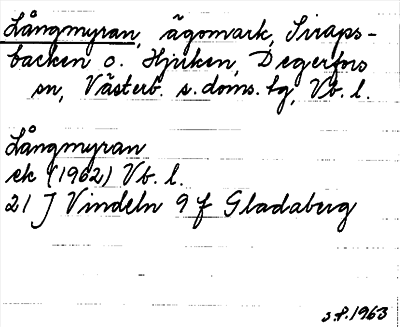 Långmyran, ägomark, Siraps-
backen o. Hjuken, Degerfors
sn, Västerb. s. doms. lg, Vb. l.
Långmyran
ek (1962) Vb. l.
21 J Vindeln 9 f Gladaberg
s.f. 1963